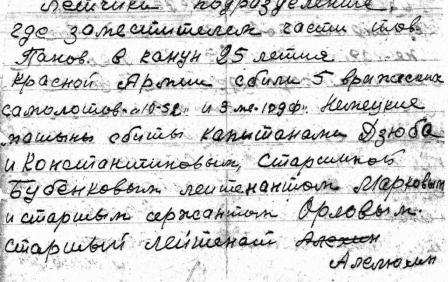 Летчики подразделение,
где заместителем части тов.
Панов. в канун 25 летия
Красной Армии сбили 5 вражеских
самолотов „ю-52" и 3 ме-109ф. Немецкие
машыны сбиты капитанами Дзюба
и Константиновым, Старшиной
Бубенковым лейтенантом Марковым
и старшым сержантом Орловым.
Старшый лейтенат Алехин
Алелюхин